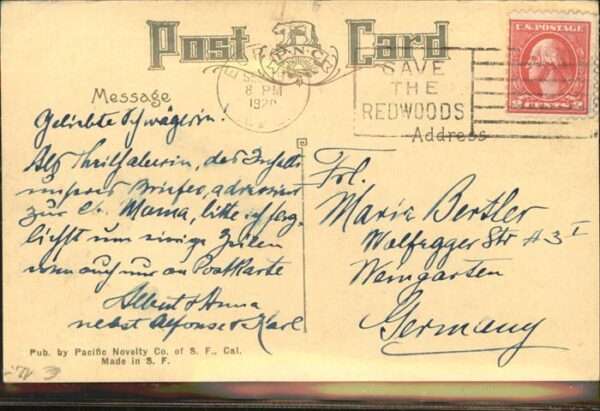 Post Card
P.N.C.
SEP
8 PM
1920
SAVE
THE
REDWOODS
U.S. POSTAGE
2 CENTS 2
Message
Address
Geliebte Schwägerin!
Als Theilhaberin, des Inhalts
unseres Briefes, adressiert
zur lb. Mama, bitte ich
um einige Zeilen
wenn auch nur an Postkarte
Albert & Anna
nebst Alfons & Karl
Frl.
Maria Bertler
Wolfegger Str # 3 I
Weingarten
Germany
Pub. by Pacific Novelty Co. of S. F., Cal.
Made in S. F.